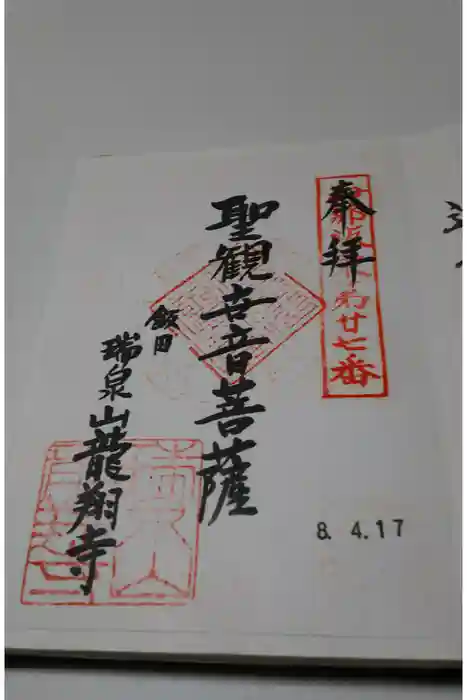 奉拝
廿七番
聖観世音菩薩
飯田
瑞泉山龍翔寺
8. 4.17